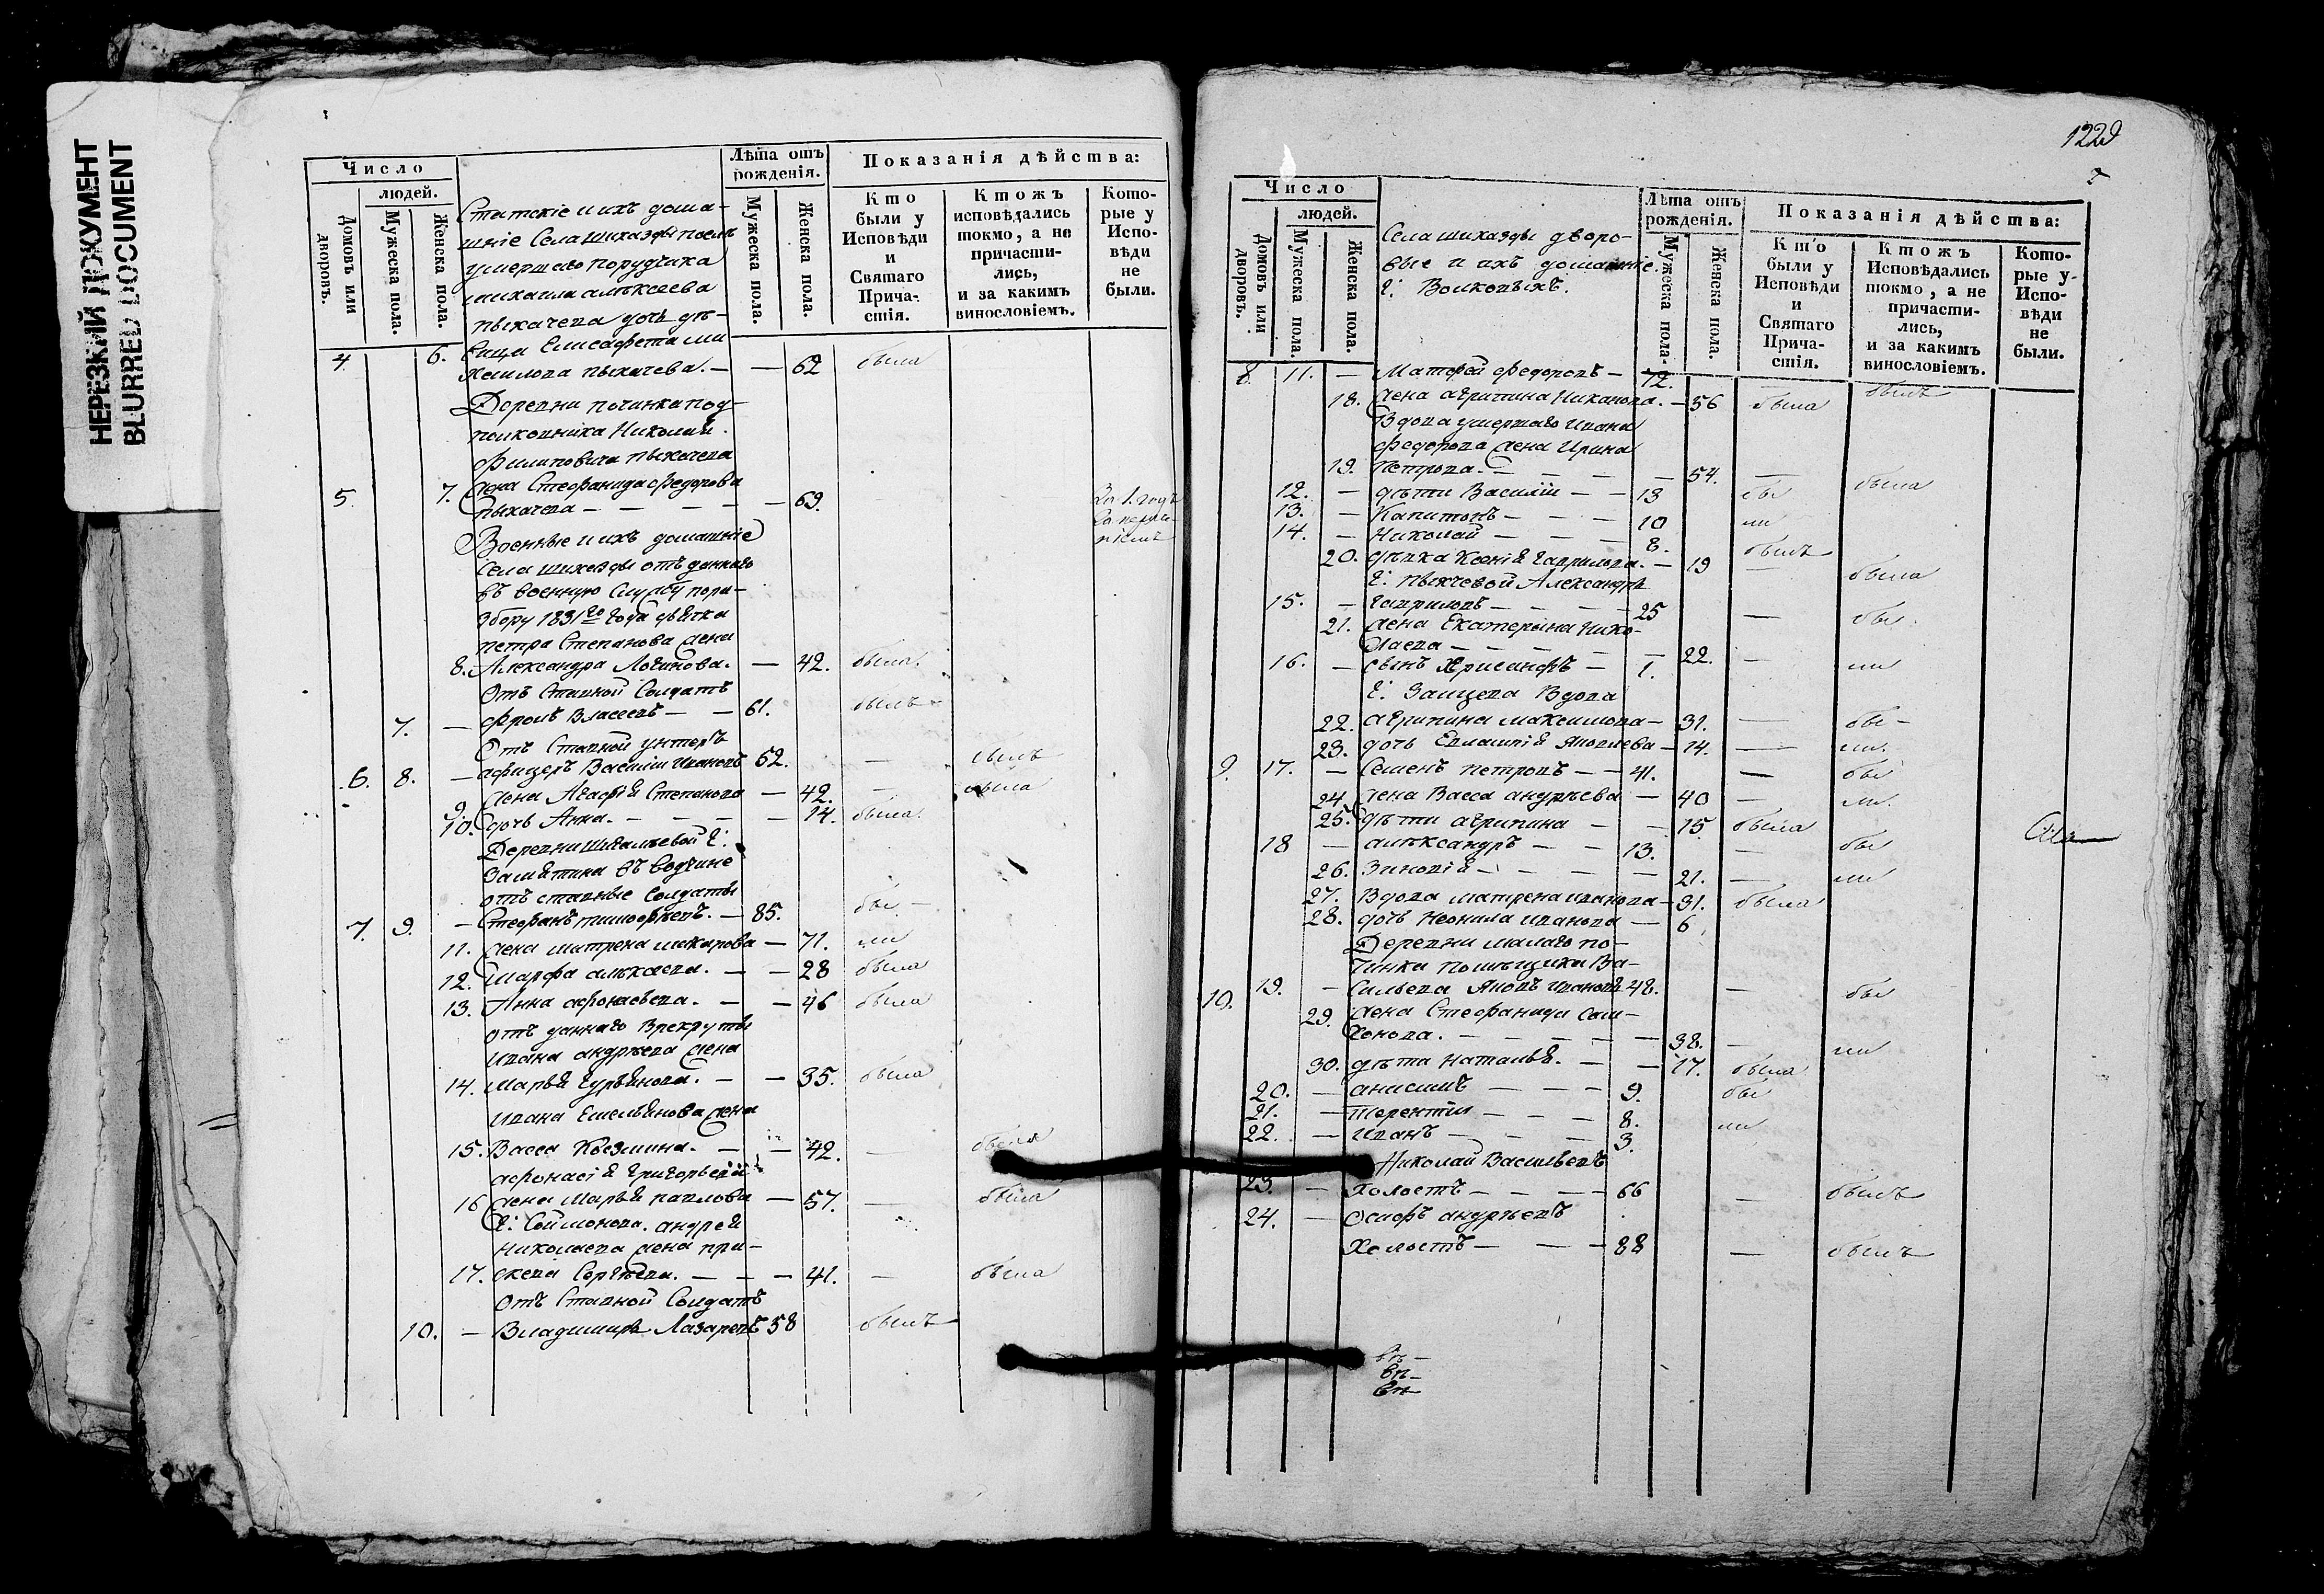 НЕРЕЗКИЙ ДОКУМЕНТ
BLURRED DOCUMENT
Число
людей.
Домовъ или дворовъ.
Мужеска пола.
Женска пола.
Статскіе и ихъ дома-
шніе Села Шихазды после
умершаго порудчика
михаила алексеева
пыхачева дочь де-
Лѣта отъ рожденія.
Мужеска пола.
Женска пола.
Показанія дѣйства:
Кто были у Исповѣди и Святаго Причастія.
Ктожъ исповѣдались токмо, а не причастились, и за какимъ винословіемъ.
Которые у Исповѣди не были.
4 6. вица Елисафета ми
хаилова пыхачева. — — 62 была
Деревни починка под-
полковника Николай
Филиповича пыхачева
5. 7. жена Стефанида федорова
пыхачева — — — — 69.
Военные и ихъ домашніе
Села шихазды отъ даннаго
въ военную Службу пона-
збору 1831го года дьячка
петра Степанова жена
8. Александра Логинова. — 42. была.
Отъ Ставной Солдатъ
7. — фролъ Власевъ — — 61. былъ
Отъ Ставной унтеръ
6. 8. — афицеръ Василій Ивановъ 52. — былъ
9 жена Агафія Степанова — 42. — была
10. дочь Анна. — — — — 14. была.
Деревни г:
Замятина въ вотчине
отъ ставные Солдаты
7. 9. — Стефанъ тимофеевъ. — 85. бы —
11. жена матрена макарова — 71. ли
12. марфа алексеева. — — 28 была
13. Анна афонасьева. — — 46 была
отъ даннаго врекруты
ивана андреева жена
14. Марья гурьянова. — — 35. была
ивана Емельянова жена
15. Васса Козмина. — — 42. — была
афонасія григорьева
16 жена Марья павлова — 57. — была
г: Соймонова. андрей
николаева жена пра-
17. скева Сергеева. — — — 41. — была
Отъ Ставной Солдатъ
10. — Владимиръ Лазаревъ 58 былъ
1229
2
Число
людей.
Домовъ или дворовъ.
Мужеска пола.
Женска пола.
Села шихазды дворо-
вые и ихъ домашніе.
г: Волковыхъ.
Лѣта отъ рожденія.
Мужеска пола.
Женска пола.
Показанія дѣйства:
Кто были у Исповѣди и Святаго Причастія.
Ктожъ Исповѣдались токмо, а не причастились, и за какимъ винословіемъ.
Которые у Исповѣди не были.
8. 11. — Матфей федоровъ — 72. былъ
18. жена агрипина Никанова. — 56 была
Вдова умершаго ивана
федорова жена Ирина
19. петрова. — — — — 54. — была
12. — дети Василій — — 13 бы
13. — Капитонъ — — — 10 ли
14. — Николай — — — 8. былъ
20. девка Ксенія гаврилова. — 19 — была
г: пыхчевой Александръ
15. — гавриловъ — — — — 25 — бы
21. жена Екатерина Нико-
лаева — — — — — — 22. — ли
16. — сынъ Хрисанфъ — 1.
г: Зайцева Вдова
22. агрипина максимова — 31. — бы —
23. дочь Евлампія Яковлева — 14. — ли.
9. 17. — Семенъ петровъ — — 41. — бы
24 жена Васса андреева — 40 — ли.
25. дети агрипина — — 15 была
18 — александръ — — 13. — бы
26. Зиновія — — — — — 21. — ли
27. Вдова матрена иванова — 31. была
28. дочь Неонила иванова — 6
Деревни малаго по-
чинка помещика Ва-
10. 19. — сильева Яковъ ивановъ 48. — бы
29. жена Стефанида Сам-
сонова. — — — — — — 38. — ли
30. дета наталья. — — 17. была
20. — анисимъ — — — 9. бы
21. — терентій — — — 8. ли
22. — иванъ — — — 3.
Николай Васильевъ
23. — холостъ — — — — 66 — былъ
24. — Осипъ андреевъ
холостъ — — — 88 — былъ